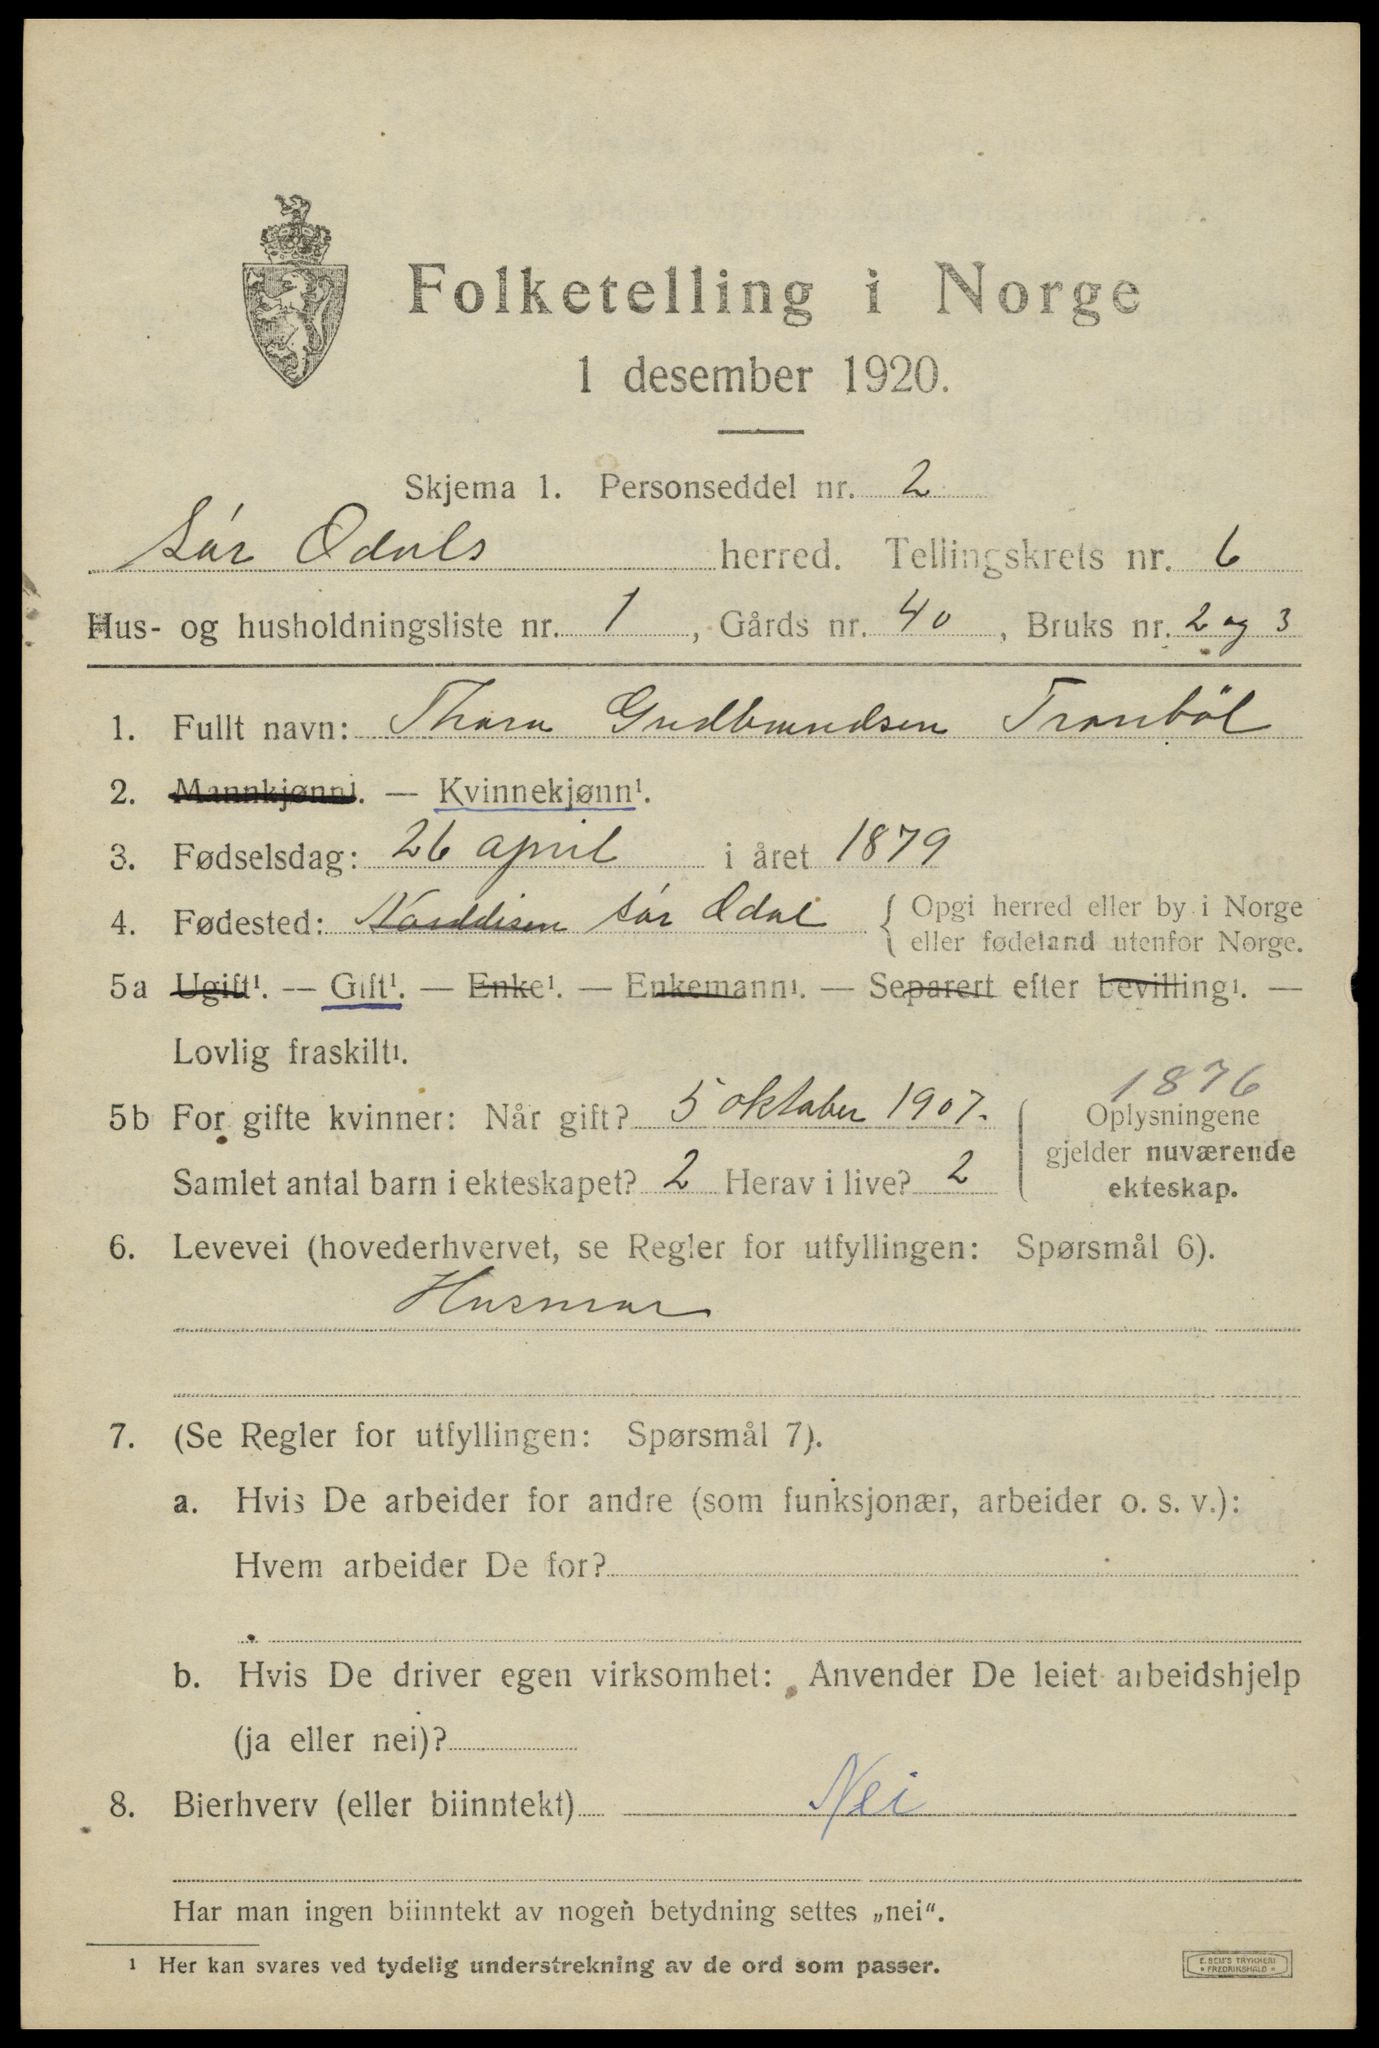 Folketelling i Norge
1 desember 1920.
Skjema 1. Personseddel nr. 2
Sór Odals herred. Tellingskrets nr. 6
Hus- og husholdningsliste nr. 1, Gårds nr. 40, Bruks nr. 2 og 3
1. Fullt navn: Thora Gudbrandsen Tronböl
2. Mannkjønn¹. — Kvinnekjønn¹.
3. Fødselsdag: 26 april i året 1879
4. Fødested: Sór Odal { Opgi herred eller by i Norge
eller fødeland utenfor Norge.
5a Ugift¹. — Gift¹. — Enke¹. — Enkemann¹. — Separert efter bevilling¹. —
Lovlig fraskilt¹.
1876
5b For gifte kvinner: Når gift? 5 oktober 1907. { Oplysningene
gjelder nuværende
Samlet antal barn i ekteskapet? 2 Herav i live? 2 ekteskap.
6. Levevei (hovederhvervet, se Regler for utfyllingen: Spørsmål 6).
Husmor
7. (Se Regler for utfyllingen: Spørsmål 7).
a. Hvis De arbeider for andre (som funksjonær, arbeider o. s. v.):
Hvem arbeider De for?
b. Hvis De driver egen virksomhet: Anvender De leiet arbeidshjelp
(ja eller nei)?
8. Bierhverv (eller biinntekt) Nei
Har man ingen biinntekt av nogen betydning settes „nei“.
¹ Her kan svares ved tydelig understrekning av de ord som passer.
E. SEM'S TRYKKERI
FREDRIKSHALD